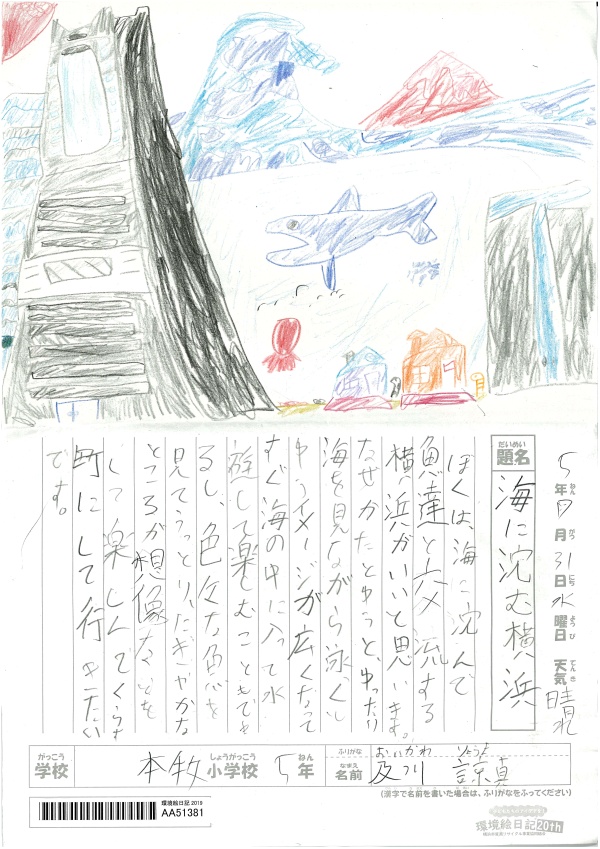 5年7月31日水曜日 天気 晴れ
ねん がつ にち ようび てんき
だいめい
題名 海に沈む横浜
ぼくは、海に沈んで
魚達と交流する
横浜がいいと思います。
なぜかたとゆうとゆったり
海を見ながら泳ぐと
ゆうイメージが広くなって
すぐ海の中に入って水
遊して楽しむこともでき
るし、色々な魚を
見てうっとり、にぎやかな
ところが想像
して楽しんでくらす
町にして行きたい
です。
がっこう しょうがっこう ねん
学校 本牧小学校 5年
ふりがな おいかわ りょうま
なまえ
名前 及川 諒真
(漢字で名前を書いた場合は、ふりがなをふってください)
環境絵日記2019
AA51381
環境絵日記20th